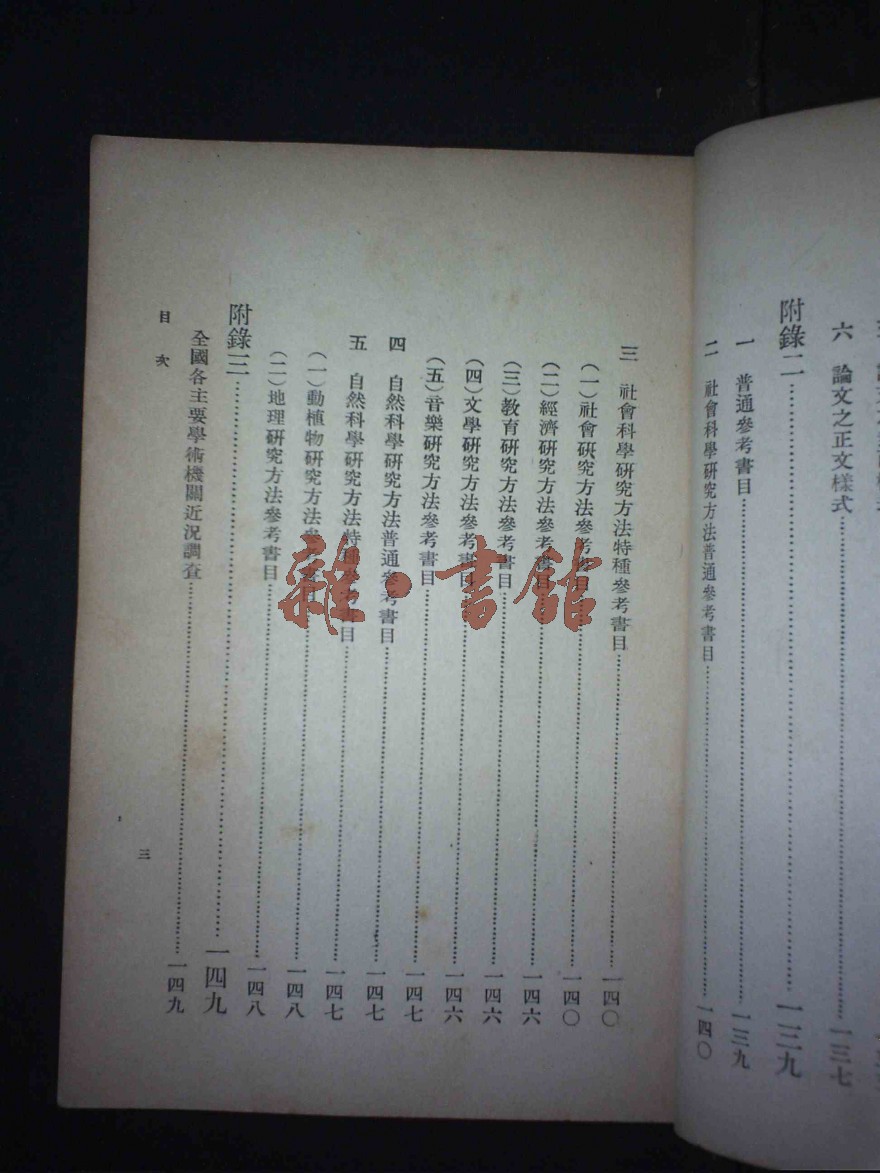 六　論文之正文樣式……一三七
附錄二……一三九
一　普通參考書目……一三九
二　社會科學研究方法普通參考書目……一四〇
三　社會科學研究方法特種參考書目……一四〇
（一）社會研究方法參考書目……一四〇
（二）經濟研究方法參考書目……一四六
（三）教育研究方法參考書目……一四六
（四）文學研究方法參考書目……一四六
（五）音樂研究方法參考書目……一四七
四　自然科學研究方法普通參考書目……一四七
五　自然科學研究方法特種參考書目……一四七
（一）動植物研究方法參考書目……一四八
（二）地理研究方法參考書目……一四八
附錄三……一四九
全國各主要學術機關近況調查……一四九
目次
三
雜·書館